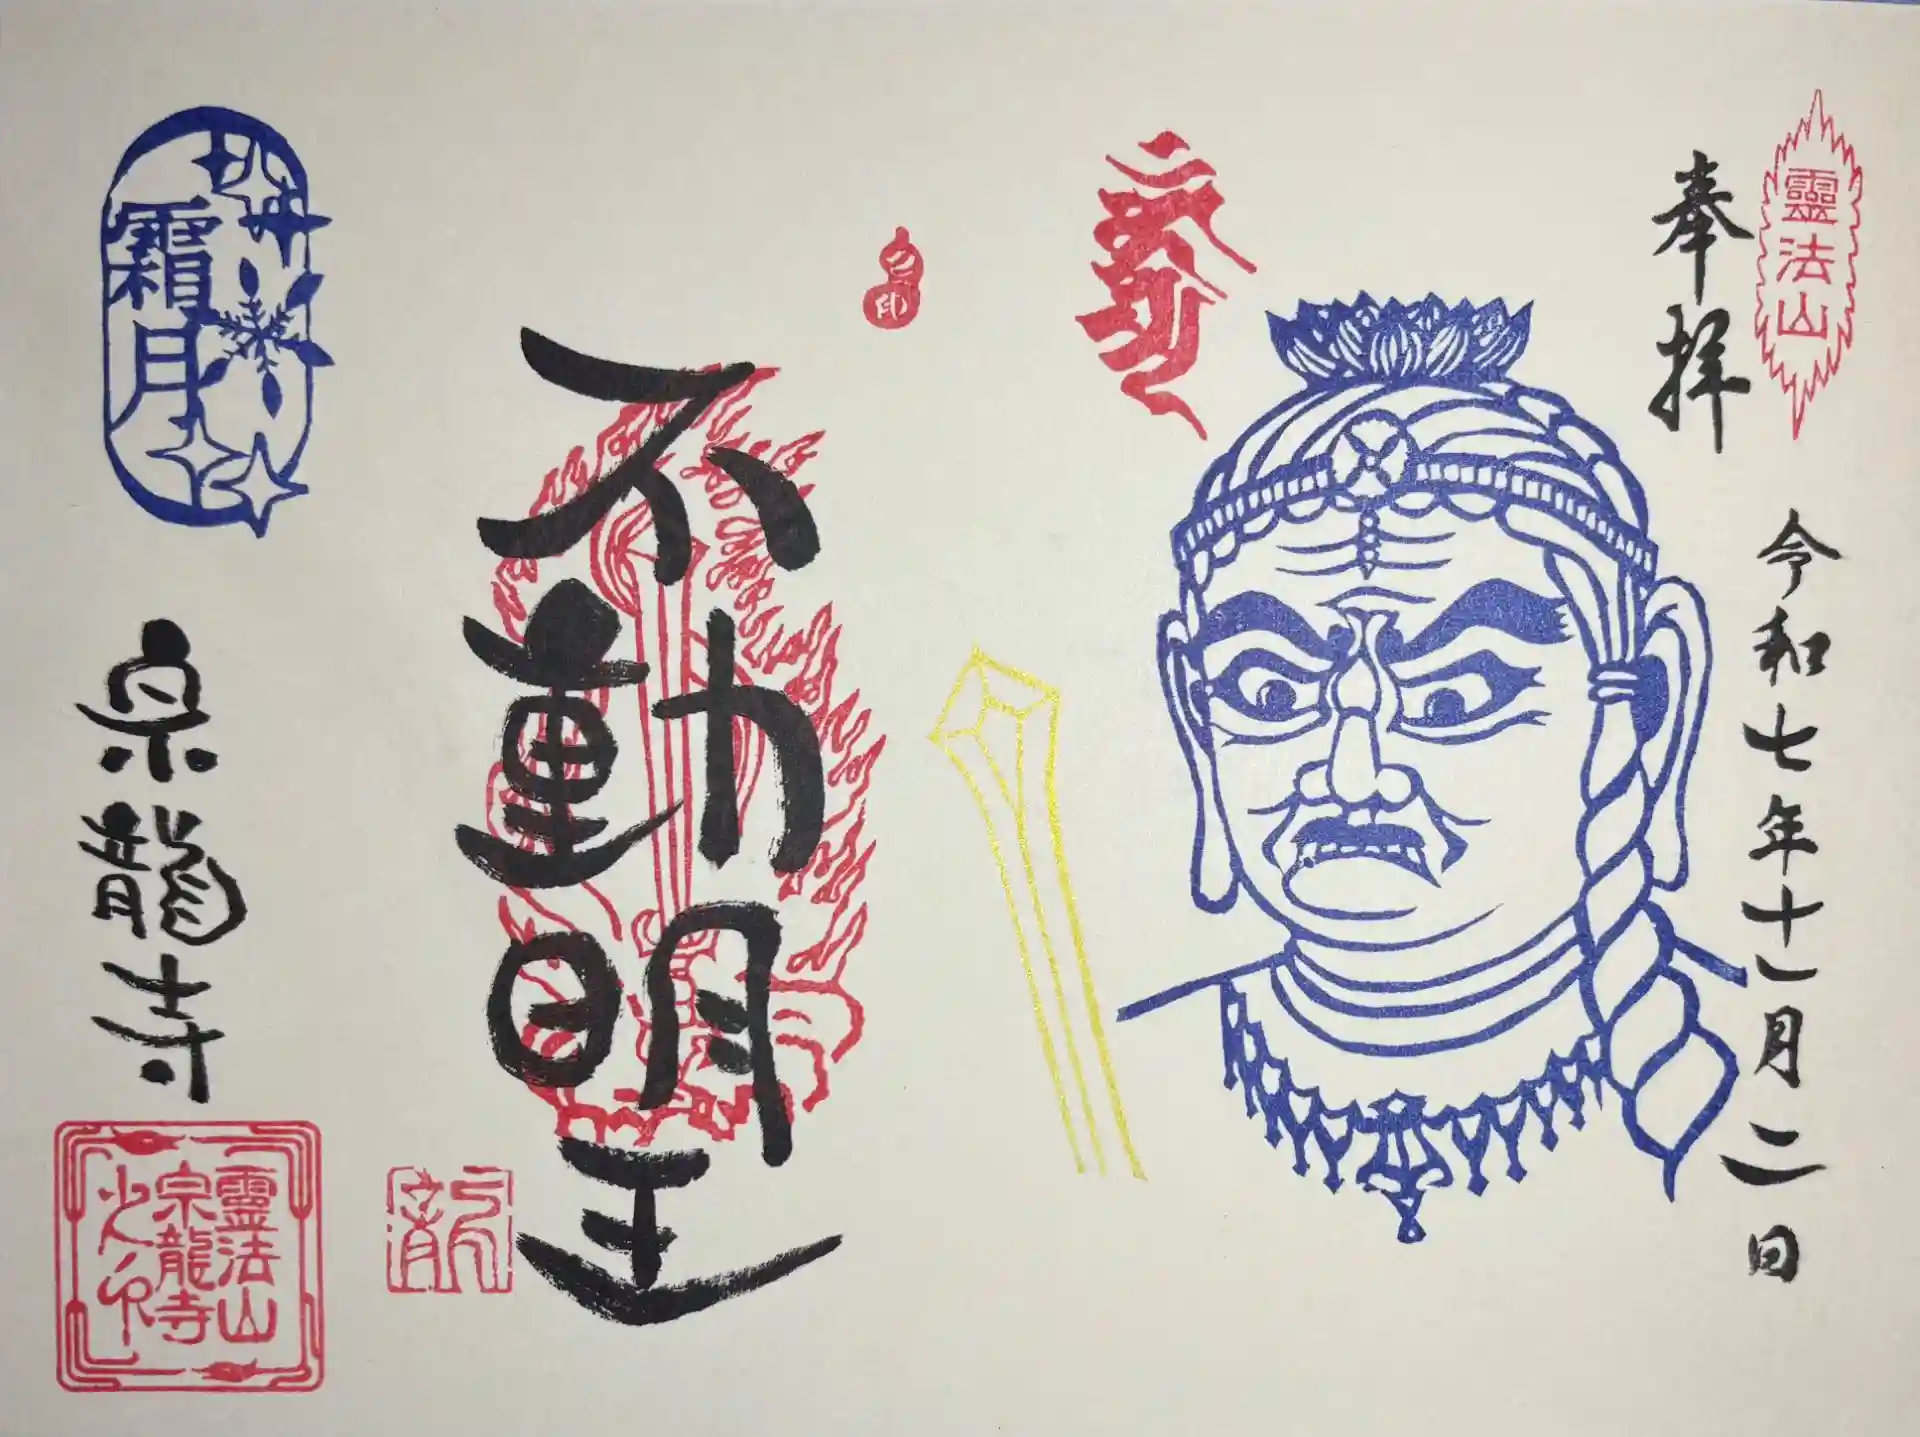 靈法山
奉拝
令和七年十一月二日
不動明王
霜月
宗龍寺
靈法山
宗龍寺
龍
印